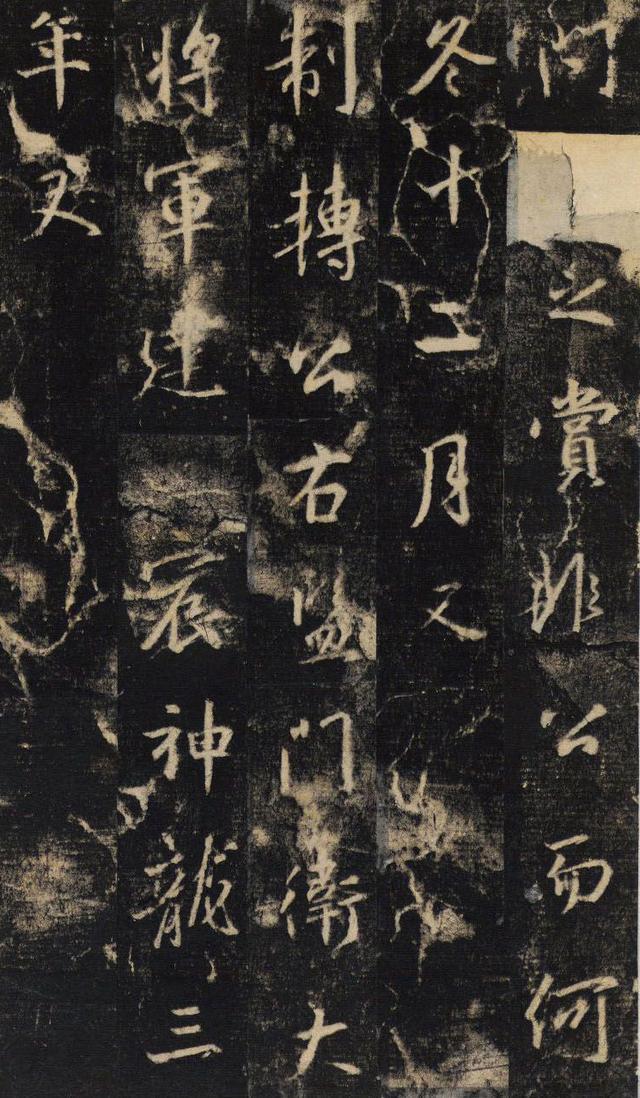 之賞非公而何
冬十二月又
制轉公右監門衛大
將軍建宸神龍三
年又